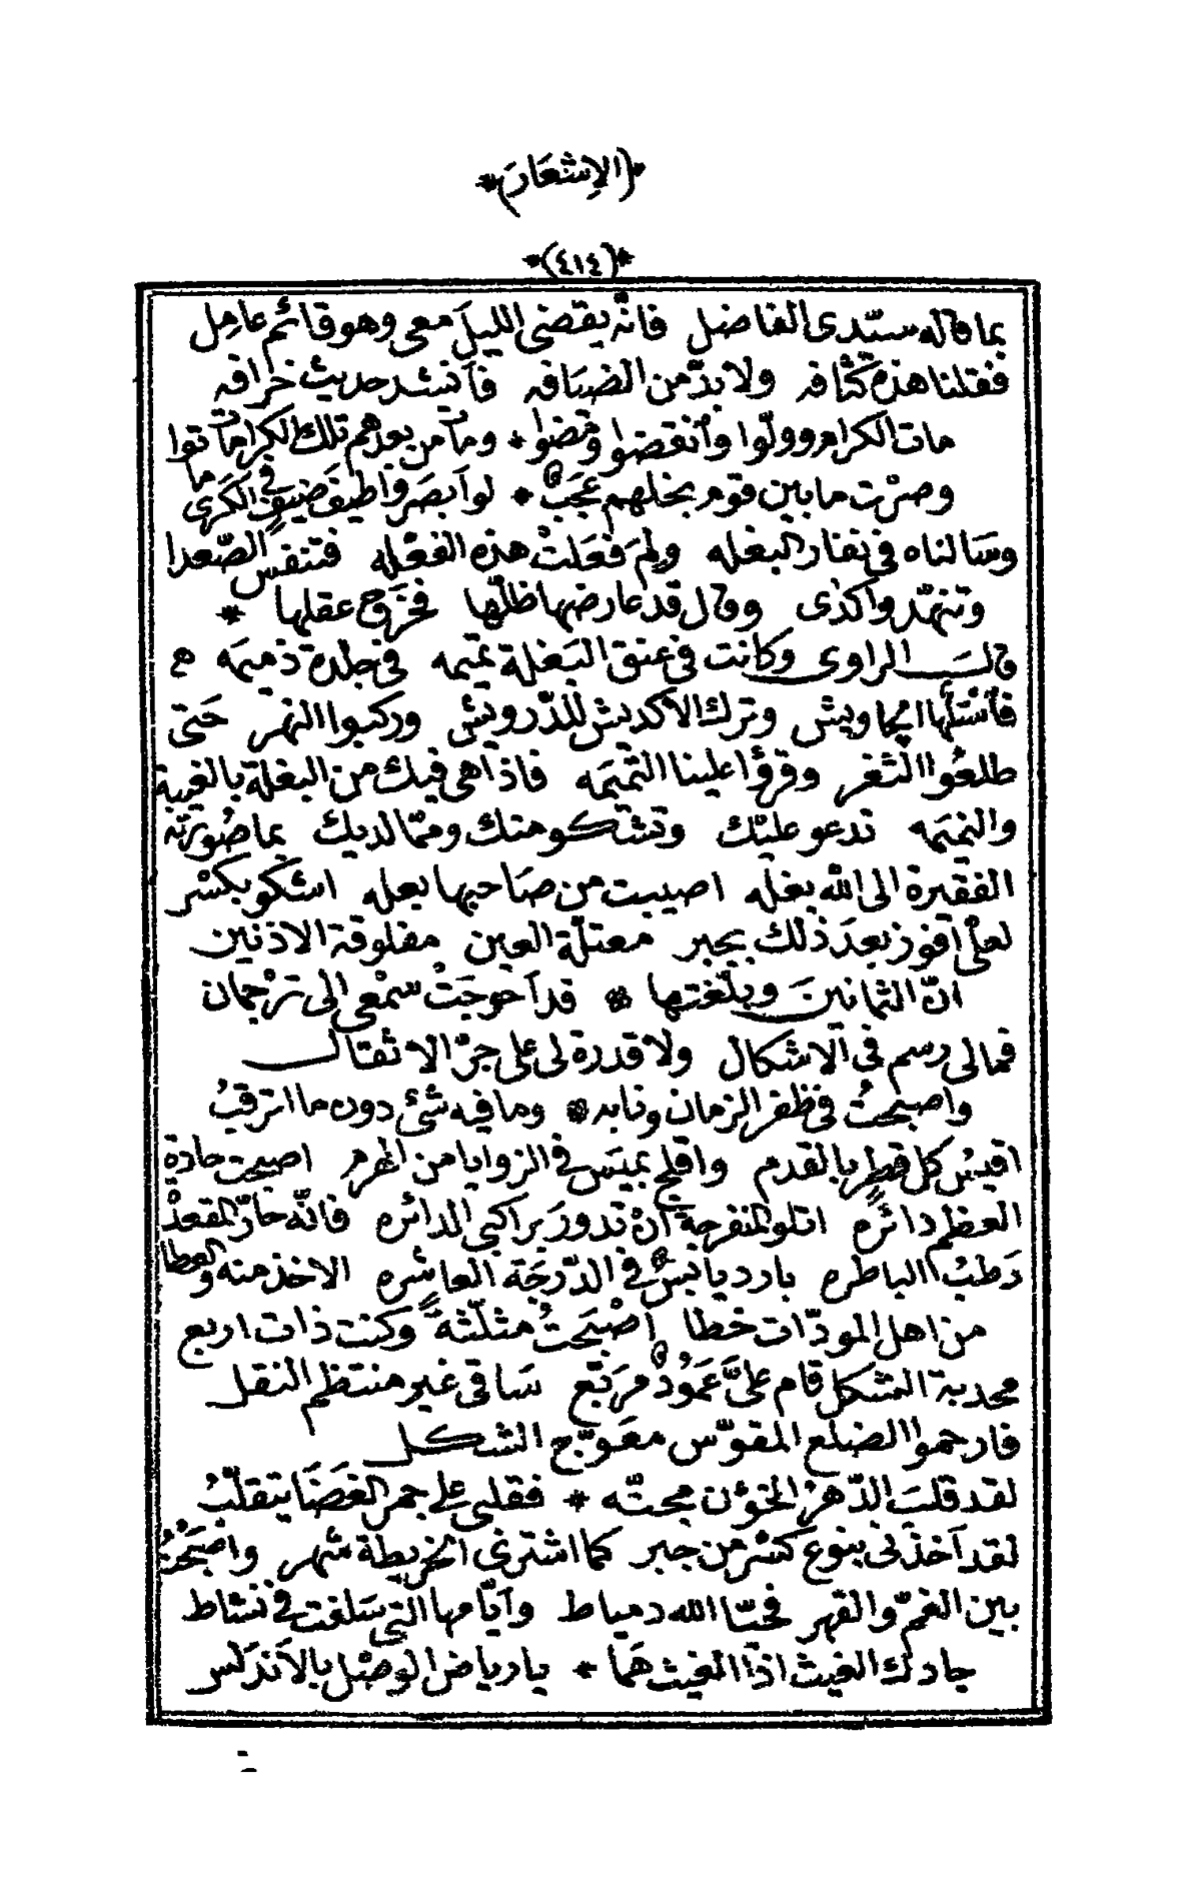 *(الإشعار)*
*(٤١٤)*
بما قاله سيّدى الفاضل فانّه يقضى الليل معى وهو قائم عامل
فقلنا هذه كثافه ولا بدّ من الضيافه فأنشد حديث خرافه
مات الكرام وولّوا وأنقضوا ومضوا * ومات من بعدهم تلك الكرامات
وصرْت ما بين قوم بخلهم عجَبٌ * لو أبصَروا طيفَ ضيفٍ فى الكَرى ماتوا
وسَالناه فى نفار البغله ولِمَ فعَلتْ هذه الفعْله فتنفس الصّعدا
وتنهّد وأكدى وقال قد عارضها ظلّها فخرَج عقلها *
قالَ الراوى وكانت فى عنق البَغلة تميمه فى جلدة ذميمَه
فأستلّها وتركَ الاكديش للدّرويش وركبوا النهر حَتى
طلعُوا الثغر وقرؤا علينا التّميمَه فاذا هى فيك من البغلة بالغيبة
والنميمَه تدعو عليْك وتشكو منك وممّا لديك بما صُورَته
الفقيرة الى الله بغله اصيبت من صَاحبها بعله اشكو بكسْر
لعلّى أفوز بعدَ ذلك بجبر معتلّة العين مفلوقة الاذنين
انّ الثمانينَ وبلّغتها * قد أحوجَتْ سمْعى الى ترْجمان
فمالى رسم فى الاشكال ولا قدرة لى على جرّ الاثقال
واصبحتُ فى ظفر الزمان ونابه * وما فيه شئ دون ما اترقبُ
اقيسُ كل قطر بالقدم من الهرم اصبحت حادة
العظم دائرَه اتلو المنفرجة أنْ تدورَ براكبى الدائره فانّه حارّ المقعدْ
رَطبُ الباطره بارد يابسٌ فى الدّرجَة العاشره الاخذ منه والعطا
من اهل المودّات خطا أصْبَحتُ مثلّثةً وكنت ذات اربع
محدبة الشكل قام علىَّ عَمُودٌ مربّع سَاقى غير منتظم النقل
فارحموا الضلع المقوّس معَوّج الشكل
لقد قلبَ الدّهرُ الخؤن مجنّه * فقلبى على جمر الغضَا يتقلّبُ
لقد أخذَنى بنوع كسْر من جبر كما اشترى الخريطة شهر واصْبَحْتُ
بين الغمّ والقهر فحيّا الله دمياط وأيّامها التى سَلفت فى نشاط
جادك الغيث اذا الغيث هَما * يا رياض الوصْل بالأندَلس